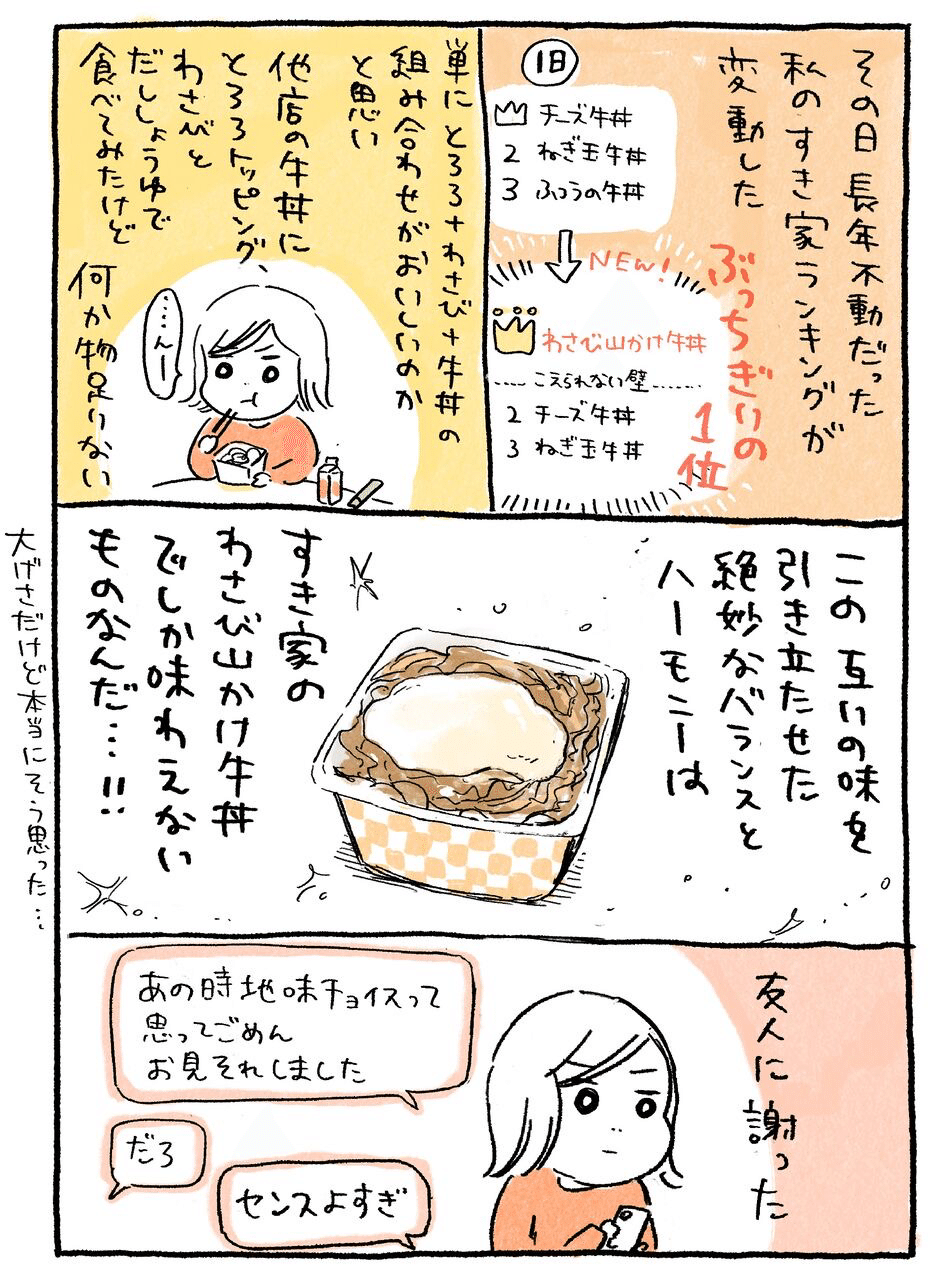 その日 長年不動だった
私のすき家ランキングが
変動した
ぶっちぎりの
1位
旧
チーズ牛丼
2 ねぎ玉牛丼
3 ふつうの牛丼
NEW!
わさび山かけ牛丼
……こえられない壁……
2 チーズ牛丼
3 ねぎ玉牛丼
単にとろろ+わさび+牛丼の
組み合わせがおいしいのか
と思い
他店の牛丼に
とろろトッピング、
わさびと
だししょうゆで
食べてみたけど
何か物足りない
……んー
この互いの味を
引き立たせた
絶妙なバランスと
ハーモニーは
すき家の
わさび山かけ牛丼
でしか味わえない
ものなんだ…!!
大げさだけど本当にそう思った…
友人に謝った
あの時地味チョイスって
思ってごめん
お見それしました
だろ
センスよすぎ